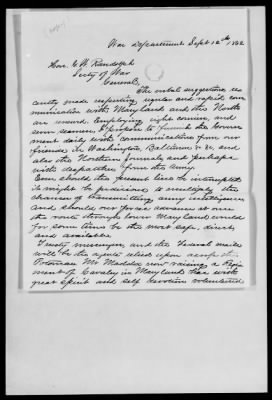 War Department Sept 12th, 1862
Hon. G W Randolph
Secty of War
General,
The verbal suggestions re
cently made respecting regular and rapid com
munication with Maryland and the North
an
men. I propose to furnish the Govern
ment daily with communications from our
friends in Washington, Baltimore &c and
also the Northern journals, and perhaps
with despatches from the Army.
Even should the present line be interrupted
it might be judicious to multiply the
chances of transmitting army intelligence
and should our force advance at once
the route through lower Maryland would
for some time be the most safe, direct
and available.
Trusty messengers, and the Federal mails
will be the agents relied upon across the
Potomac Mr Maddox now raising a Regi
ment of Cavalry in Maryland has with
great spirit and self devotion volunteered